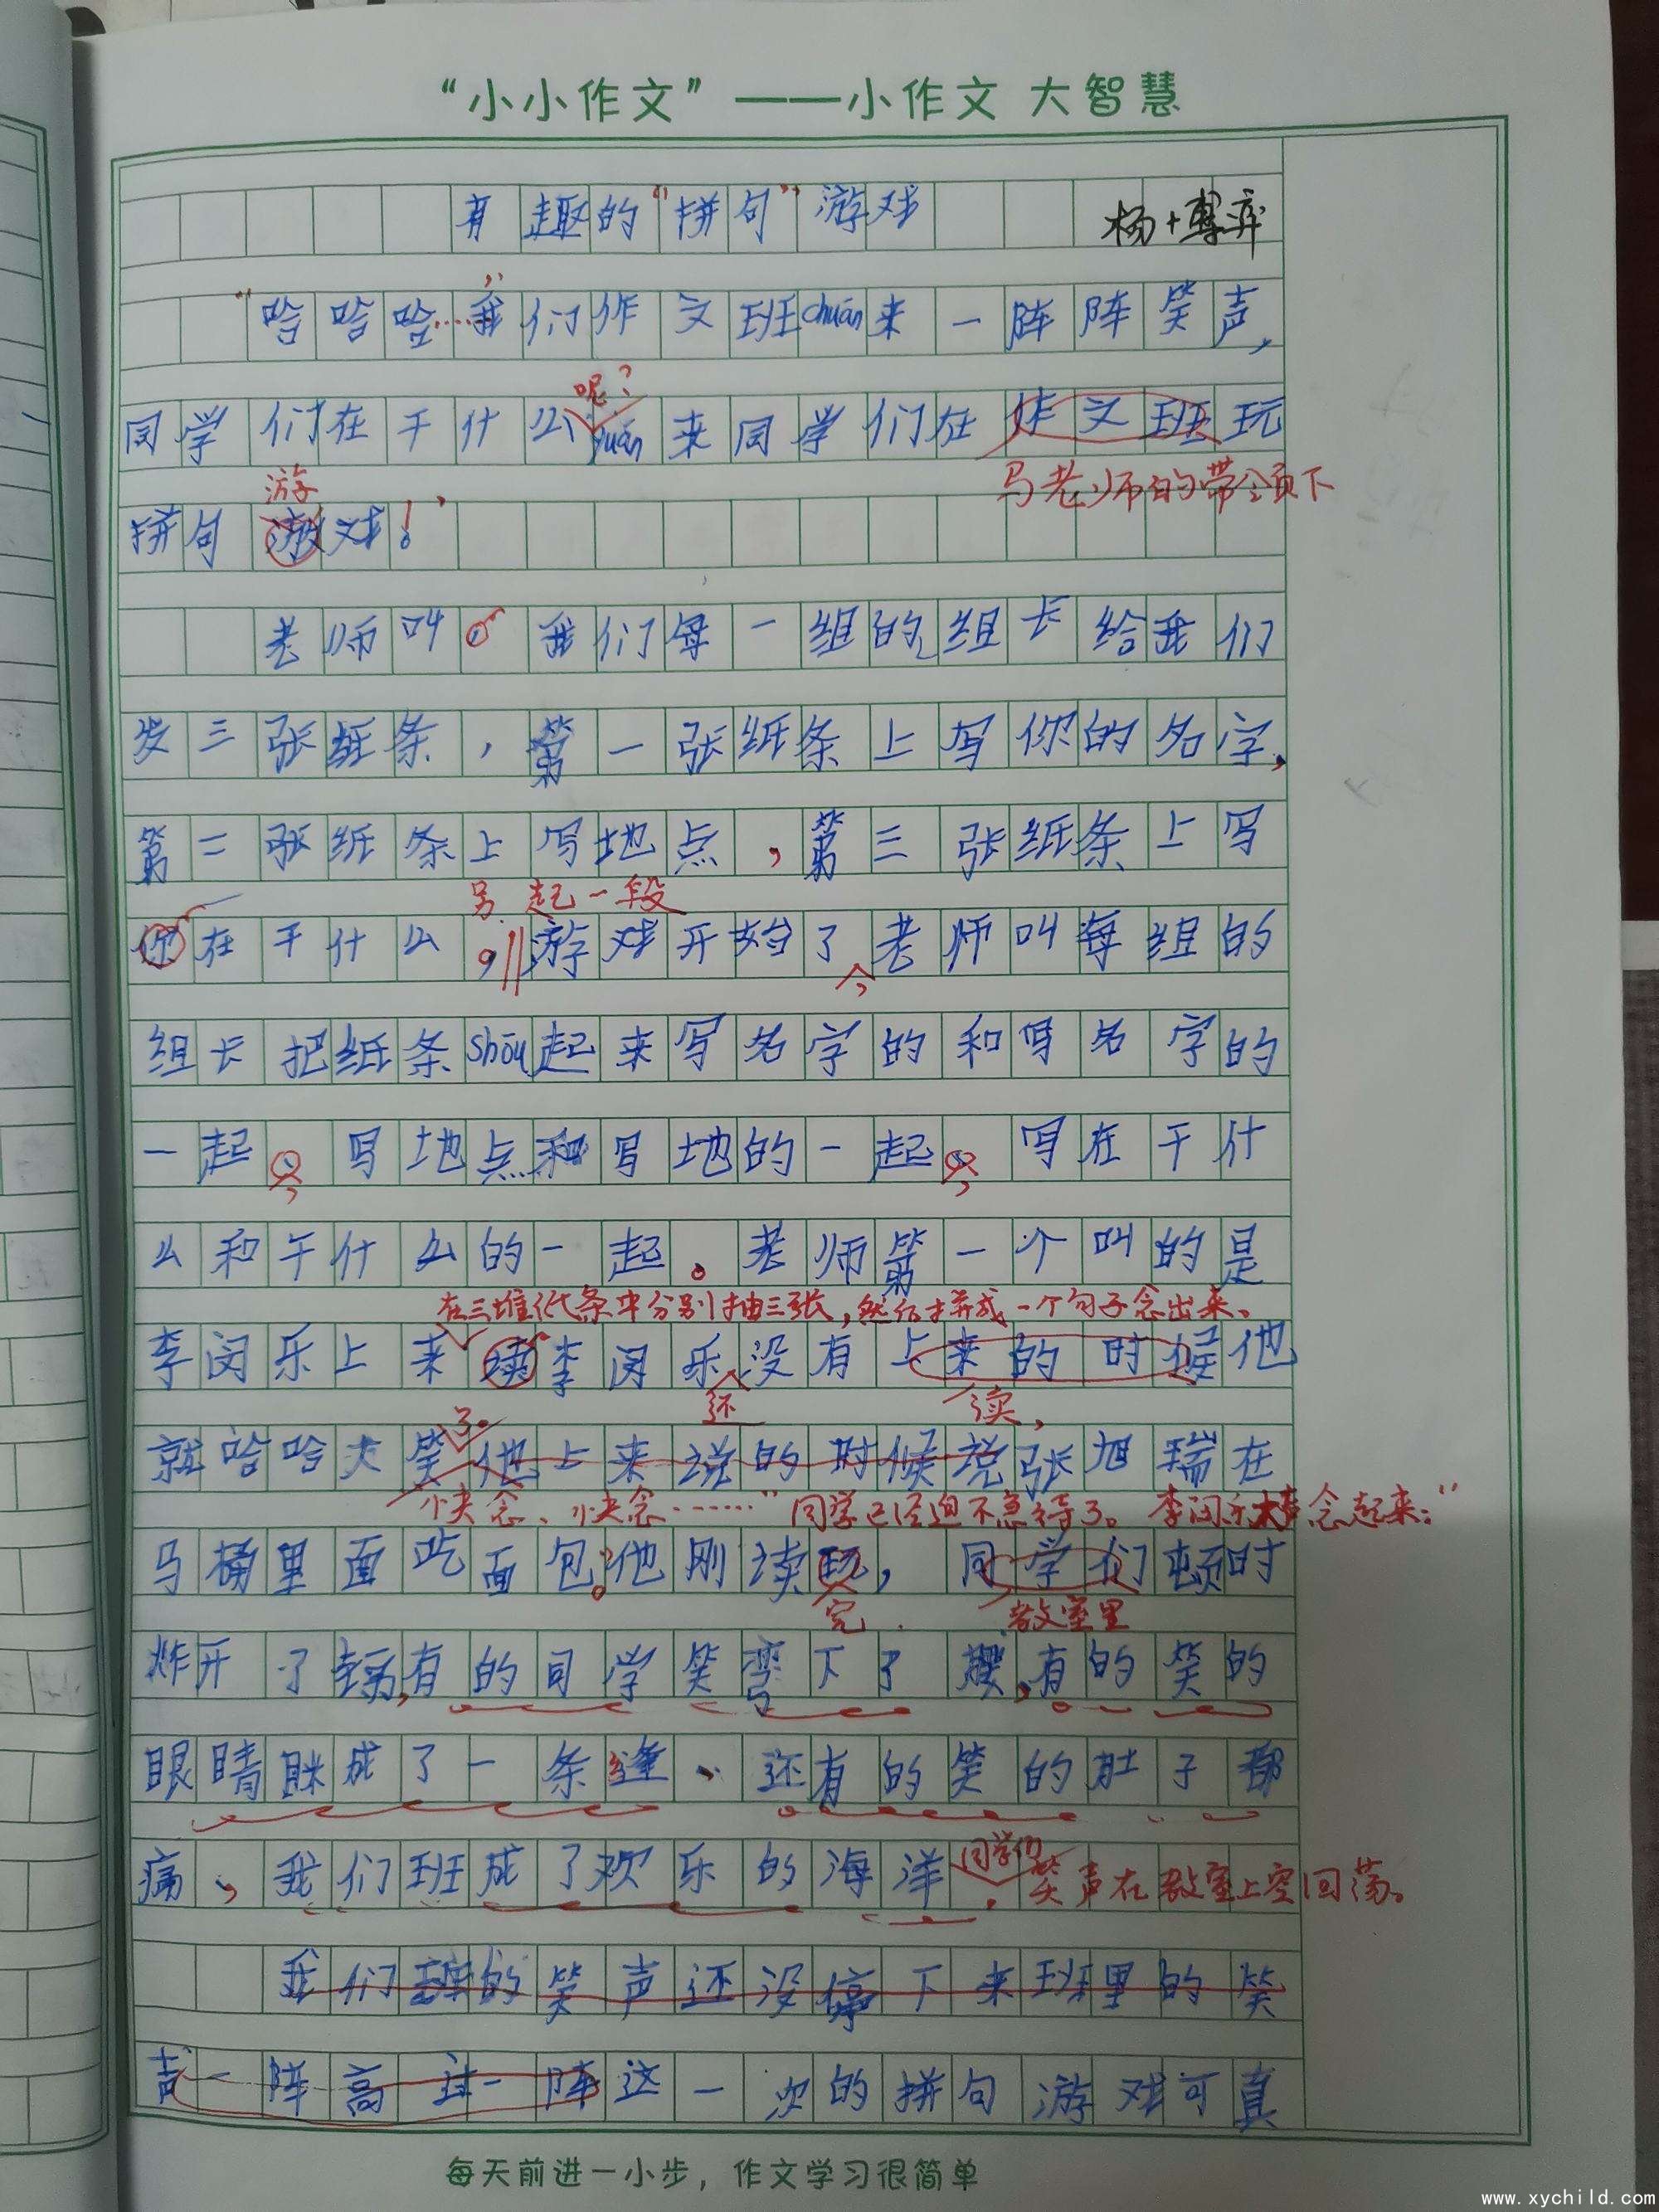 “小小作文”——小作文 大智慧
有趣的“拼句”游戏
“哈哈哈……”我们作文班chuán来一阵阵笑声,
呢?
同学们在干什么yuán来同学们在作文班玩
游 马老师的带领下
拼句游戏!
老师叫我们每一组的组长给我们
发三张纸条,第一张纸条上写你的名字,
第二张纸条上写地点,第三张纸条上写
另起一段
你在干什么。游戏开始了,老师叫每组的
组长把纸条shōu起来写名字的和写名字的
一起,写地点和写地的一起,写在干什
么和干什么的一起。老师第一个叫的是
在三堆纸条中分别抽三张,然后拼成一个句子念出来。
李闵乐上来读李闵乐没有上来的时候他
还 读,
了。
就哈哈大笑他上来说的时候说张旭瑞在
“快念、快念……”同学已经迫不急待了。李闵乐大声念起来:“
马桶里面吃面包。”他刚读玩,同学们顿时
完 教室里
炸开了锅,有的同学笑弯下了腰,有的笑的
眼睛眯成了一条缝、还有的笑的肚子都
痛,我们班成了欢乐的海洋,同学们笑声在教室上空回荡。
我们班的笑声还没停下来班里的笑
声一阵高过一阵这一次的拼句游戏可真
每天前进一小步,作文学习很简单
www.xychild.com